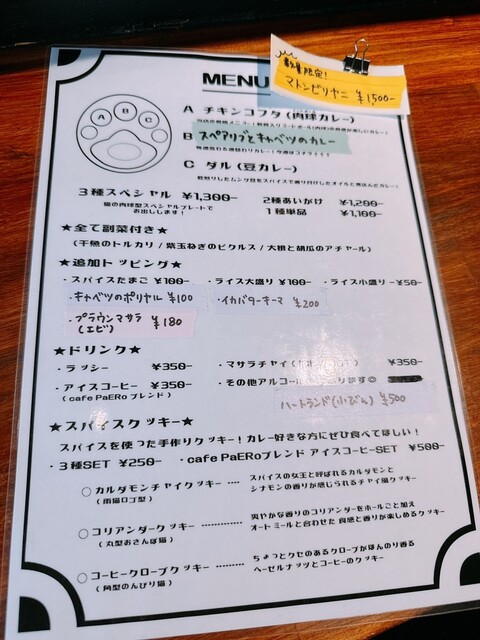 数量限定!
マトンビリヤニ ¥1500-
MENU
A B C
A チキンコフタ(肉球カレー)
B スペアリブとキャベツのカレー
C ダル(豆カレー)
3種スペシャル ¥1,300-
猫の肉球型スペシャルプレートで
お出しします!
2種あいがけ ¥1,200-
1種単品 ¥1,100-
★全て副菜付き★
(干魚のトルカリ / 紫玉ねぎのピクルス / 大根と胡瓜のアチャール)
★追加トッピング★
・スパイスたまご ¥100- ・ライス大盛り ¥100- ・ライス小盛り -¥50-
・キャベツのポリヤル ¥100 ・イカバターキーマ ¥200
・プラウンマサラ ¥180
(エビ)
★ドリンク★
・ラッシー ¥350- ・マサラチャイ ¥350-
・アイスコーヒー ¥350-
(cafe PaERo ブレンド)
・その他アルコール
ハートランド(小びん) ¥500
★スパイスクッキー★
スパイスを使った手作りクッキー!カレー好きな方にぜひ食べてほしい!
・3種SET ¥250- ・cafe PaEROブレンド アイスコーヒーSET ¥500-
○ カルダモンチャイクッキー ----
(雨猫ロゴ型)
スパイスの女王と呼ばれるカルダモンと
シナモンの香りが感じられるチャイ風クッキー
○ コリアンダークッキー ------------
(丸型おさんぽ猫)
爽やかな香りのコリアンダーをホールごと加え
オートミールと合わせた 食感と香りが楽しめるクッキー
○ コーヒークローブクッキー ---------
(角型のんびり猫)
ちょっとクセのあるクローブがほんのり香る
ヘーゼルナッツとコーヒーのクッキー